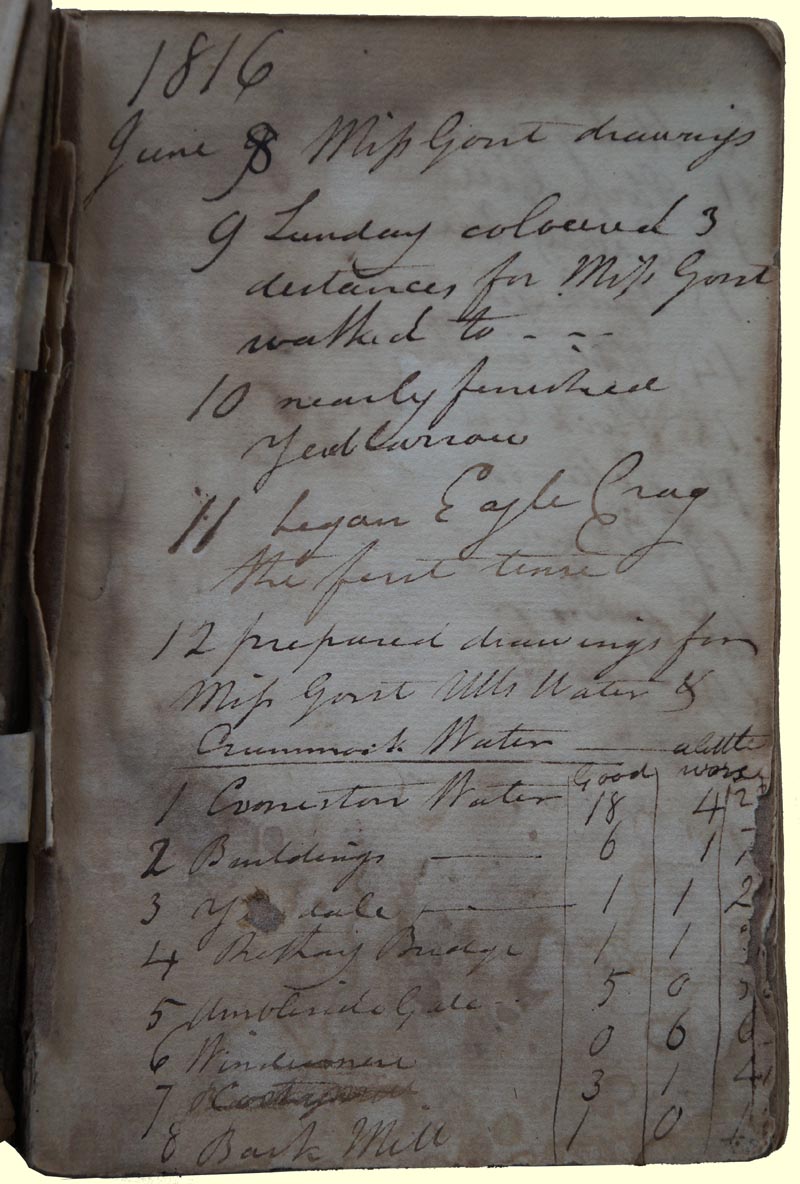 1816
June 8 Miss Gont drawings
9 Sunday coloured 3
distances for Miss Gont
walked to - - -
10 nearly finished
Yewbarrow
11 began Eagle Crag
the first time
12 prepared drawings for
Miss Gont Ulls Water &
Crummock Water — a little
Good worse
1 Conneston Water 18 4 2
2 Buildings — 6 1 1
3 dale — 1 1 2
4 Rothay Bridge 1 1
5 Ambleside Gale - 5 0
6 Windermere 0 6 6
7 3 1 4
8 Bark Mill 1 0 1